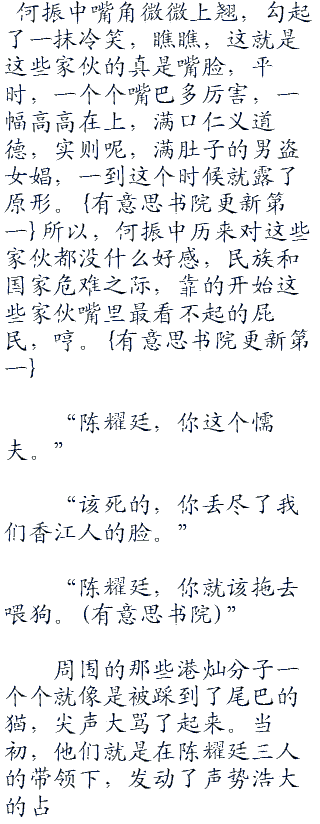 何振中嘴角微微上翘，勾起
了一抹冷笑，瞧瞧，这就是
这些家伙的真是嘴脸，平
时，一个个嘴巴多厉害，一
幅高高在上，满口仁义道
德，实则呢，满肚子的男盗
女娼，一到这个时候就露了
原形。{有意思书院更新第
一}所以，何振中历来对这些
家伙都没什么好感，民族和
国家危难之际，靠的开始这
些家伙嘴里最看不起的屁
民，哼。{有意思书院更新第
一}
“陈耀廷，你这个懦
夫。”
“该死的，你丢尽了我
们香江人的脸。”
“陈耀廷，你就该拖去
喂狗。(有意思书院)”
周围的那些港灿分子一
个个就像是被踩到了尾巴的
猫，尖声大骂了起来。当
初，他们就是在陈耀廷三人
的带领下，发动了声势浩大
的占